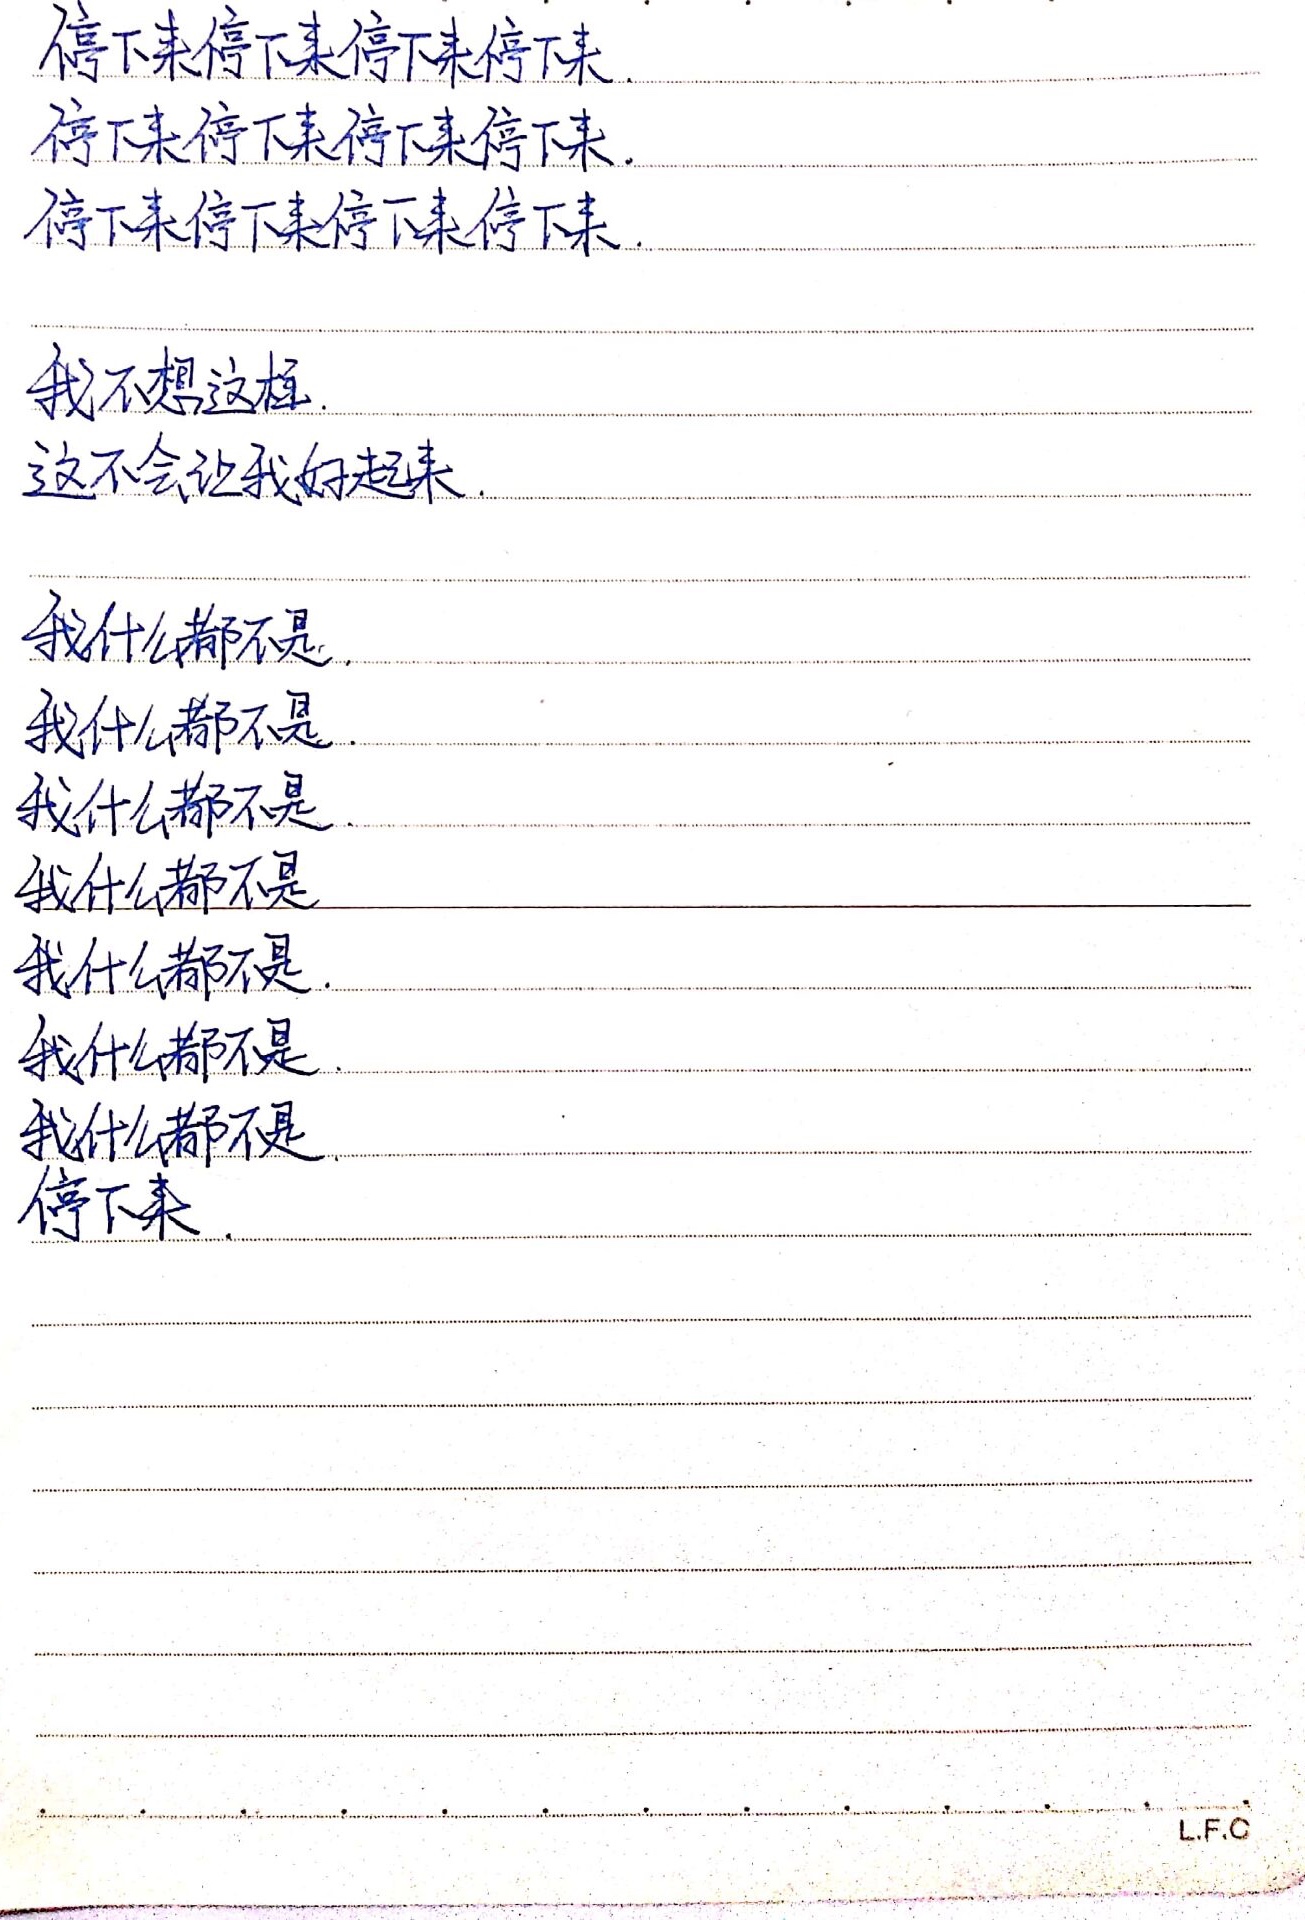 停下来停下来停下来停下来.
停下来停下来停下来停下来.
停下来停下来停下来停下来.
我不想这样.
这不会让我好起来.
我什么都不是.
我什么都不是.
我什么都不是.
我什么都不是
我什么都不是.
我什么都不是.
我什么都不是.
停下来.
L.F.C